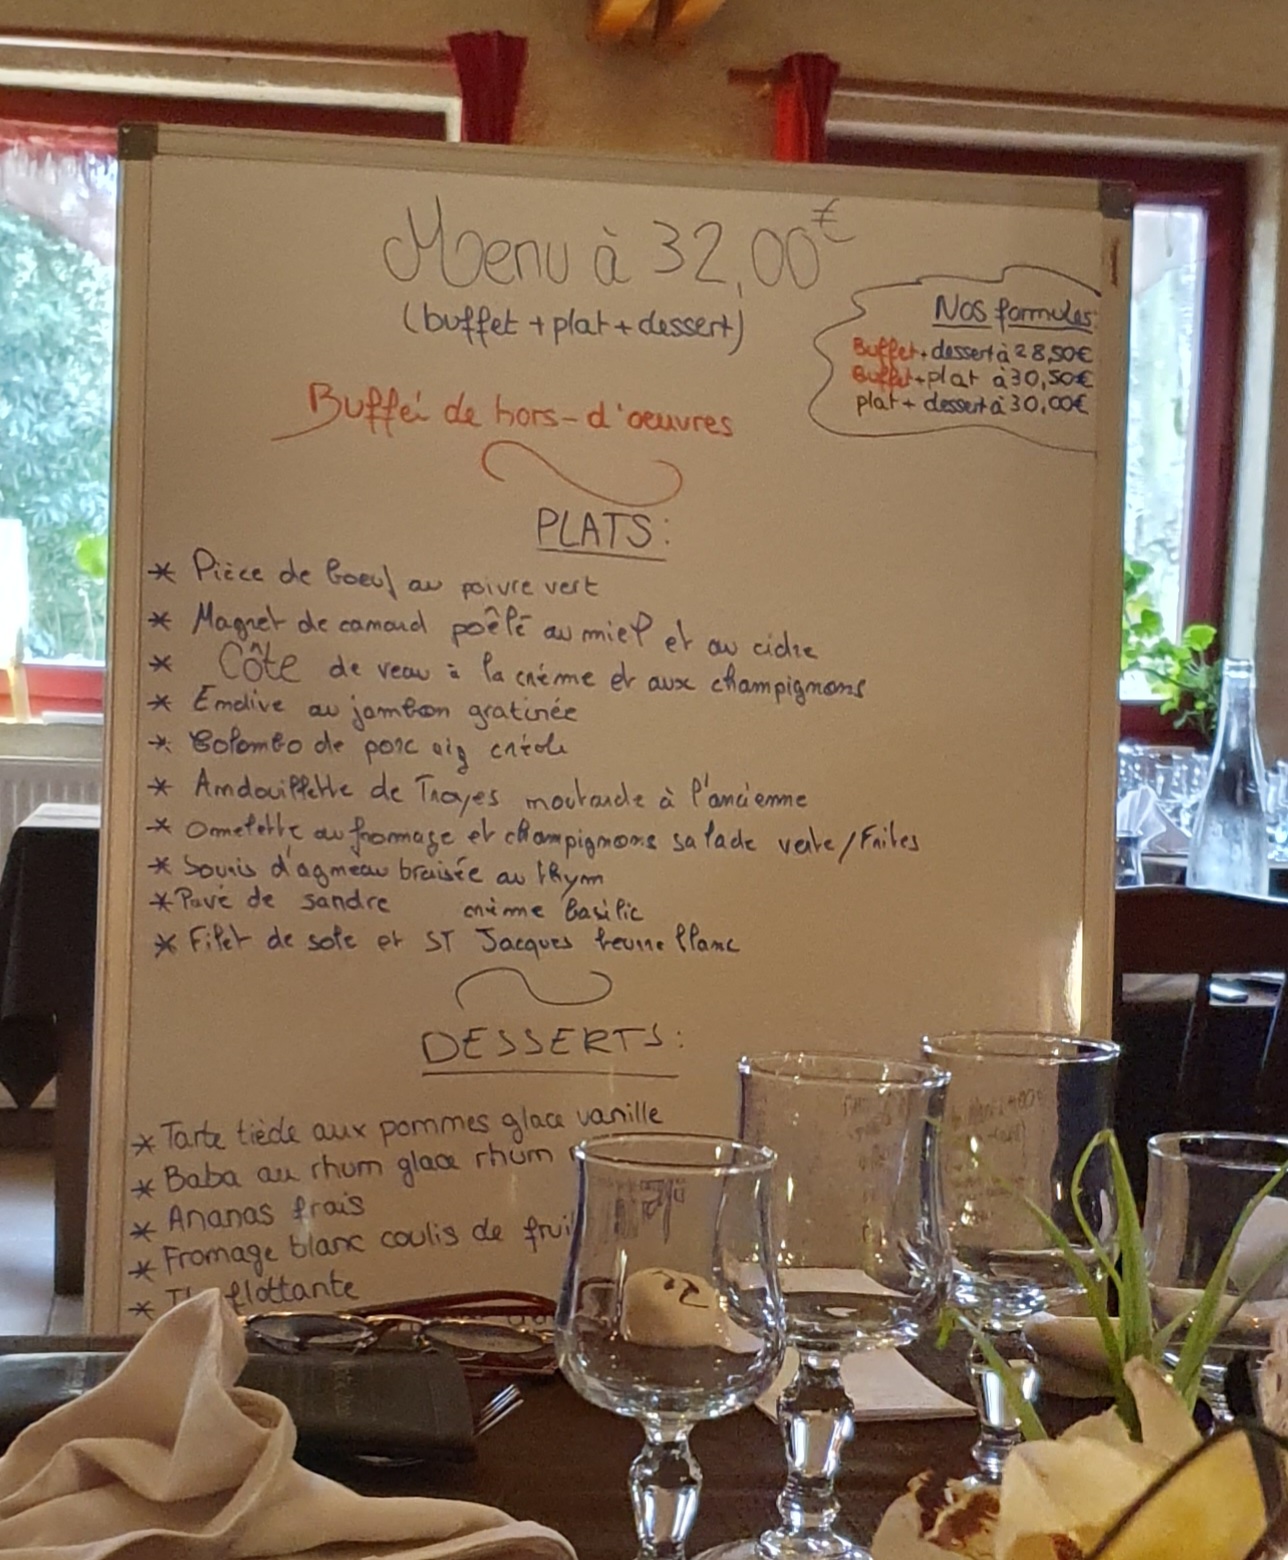 Menu à 32,00€
(buffet + plat + dessert)
Nos formules:
Buffet + dessert à 28,50€
Buffet + plat à 30,50€
plat + dessert à 30,00€
Buffet de hors-d'oeuvres
PLATS:
* Pièce de boeuf au poivre vert
* Magret de canard poêlé au miel et au cidre
* Côte de veau à la crème et aux champignons
* Endive au jambon gratinée
* Colombo de porc riz créole
* Andouillette de Troyes moutarde à l'ancienne
* Omelette au fromage et champignons salade verte/Frites
* Souris d'agneau braisée au thym
* Pavé de sandre crème basilic
* Filet de sole et ST Jacques beurre blanc
DESSERTS:
* Tarte tiède aux pommes glace vanille
* Baba au rhum glace rhum
* Ananas frais
* Fromage blanc coulis de frui
* flottante